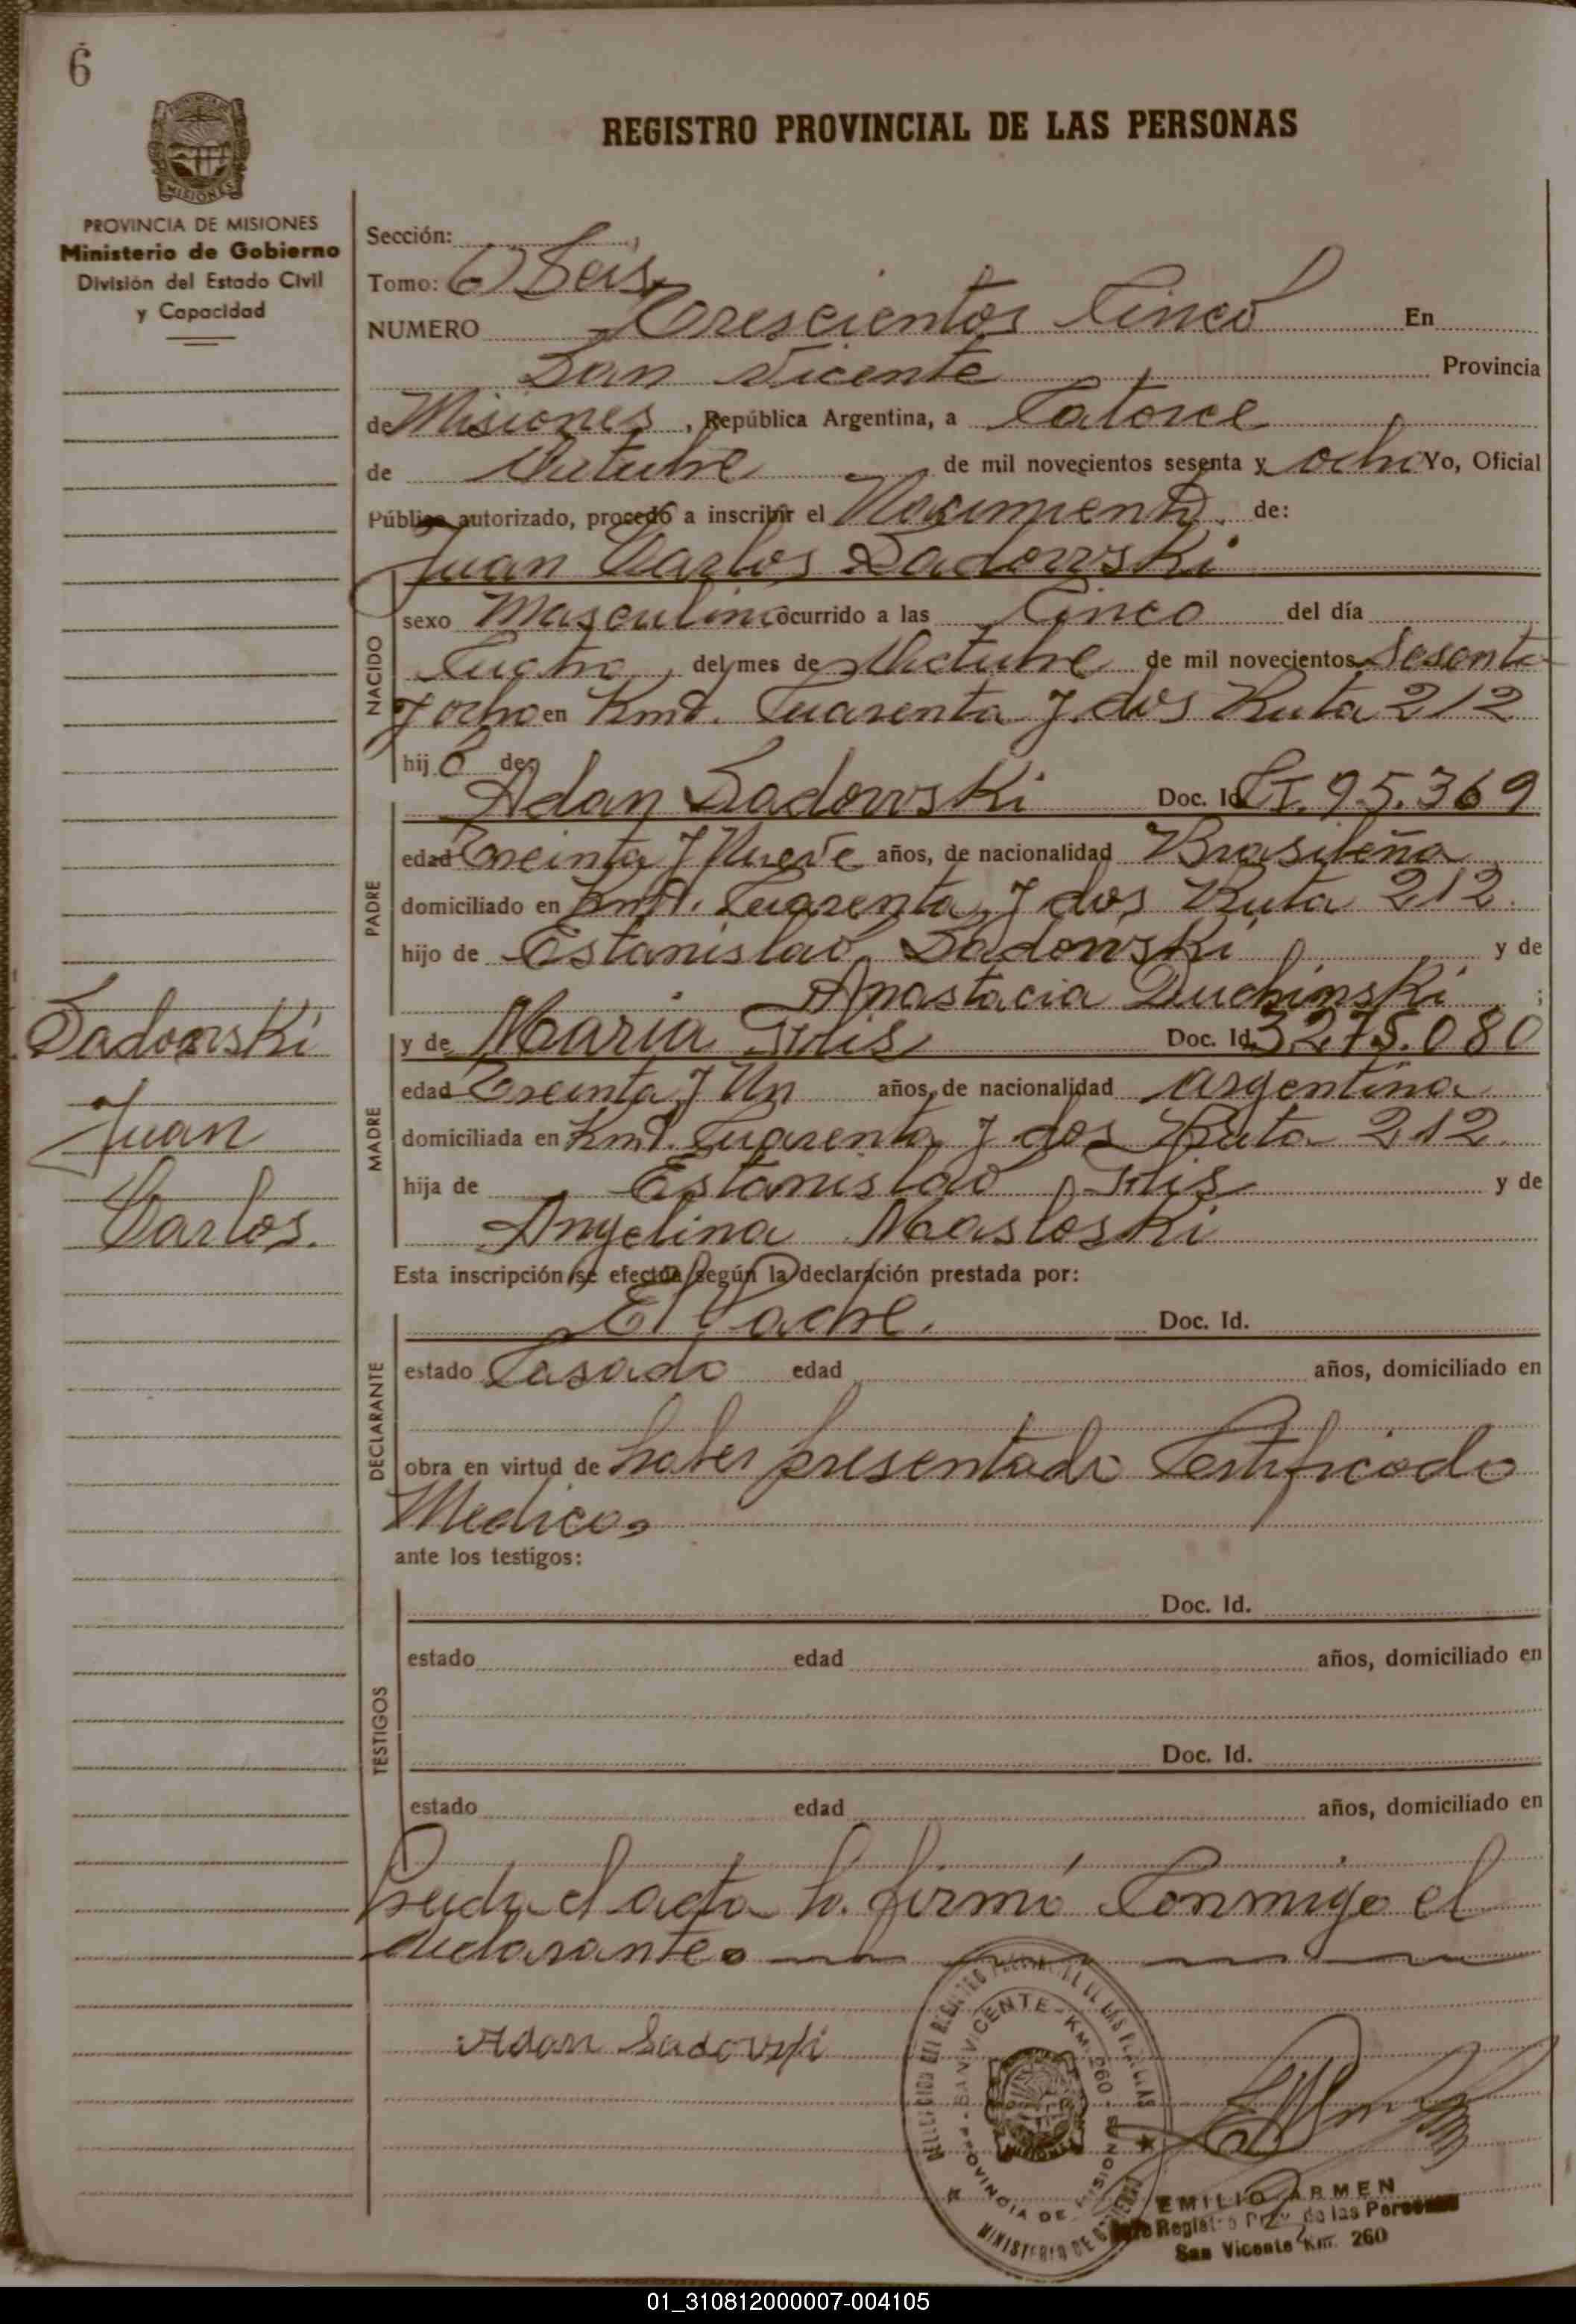 6
PROVINCIA DE MISIONES
Ministerio de Gobierno
División del Estado Civil
y Capacidad
REGISTRO PROVINCIAL DE LAS PERSONAS
Sección:
Tomo: 6) Seis
NUMERO Trescientos Cinco En
San Vicente Provincia
de Misiones, República Argentina, a Catorce
de Octubre de mil novecientos sesenta y ocho Yo, Oficial
Público autorizado, procedo a inscribir el Nacimiento de:
Juan Carlos Sadowski
NACIDO
sexo Masculino ocurrido a las Cinco del día
Cuatro, del mes de Octubre de mil novecientos Sesenta
y ocho en Kmt. Cuarenta y dos Ruta 212
hijo de
PADRE
Adan Sadowski Doc. Id. CI. 95.369
edad Treinta y Nueve años, de nacionalidad Brasileña
domiciliado en Kmt. Cuarenta y dos Ruta 212.
hijo de Estanislao Sadowski y de
Anastacia Duchinski ;
MADRE
y de Maria Doc. Id. 3.275.080
edad Treinta y Un años, de nacionalidad argentina
domiciliada en Kmt. Cuarenta y dos Ruta 212.
hija de Estanislao y de
Angelina Masloski
Sadowski
Juan
Carlos.
Esta inscripción se efectúa según la declaración prestada por:
DECLARANTE
El Padre. Doc. Id.
estado Casado edad años, domiciliado en
obra en virtud de haber presentado Certificado
Medico
ante los testigos:
TESTIGOS
Doc. Id.
estado edad años, domiciliado en
Doc. Id.
estado edad años, domiciliado en
Leida el acta la firmó Conmigo el
declarante
Adan Sadovski
SAN VICENTE - KM. 260 - PROVINCIA DE MISIONES
MINISTERIO DE GOBIERNO
EMILIO ARMEN
Jefe Registro Prov. de las Personas
San Vicente Km. 260
01_310812000007-004105